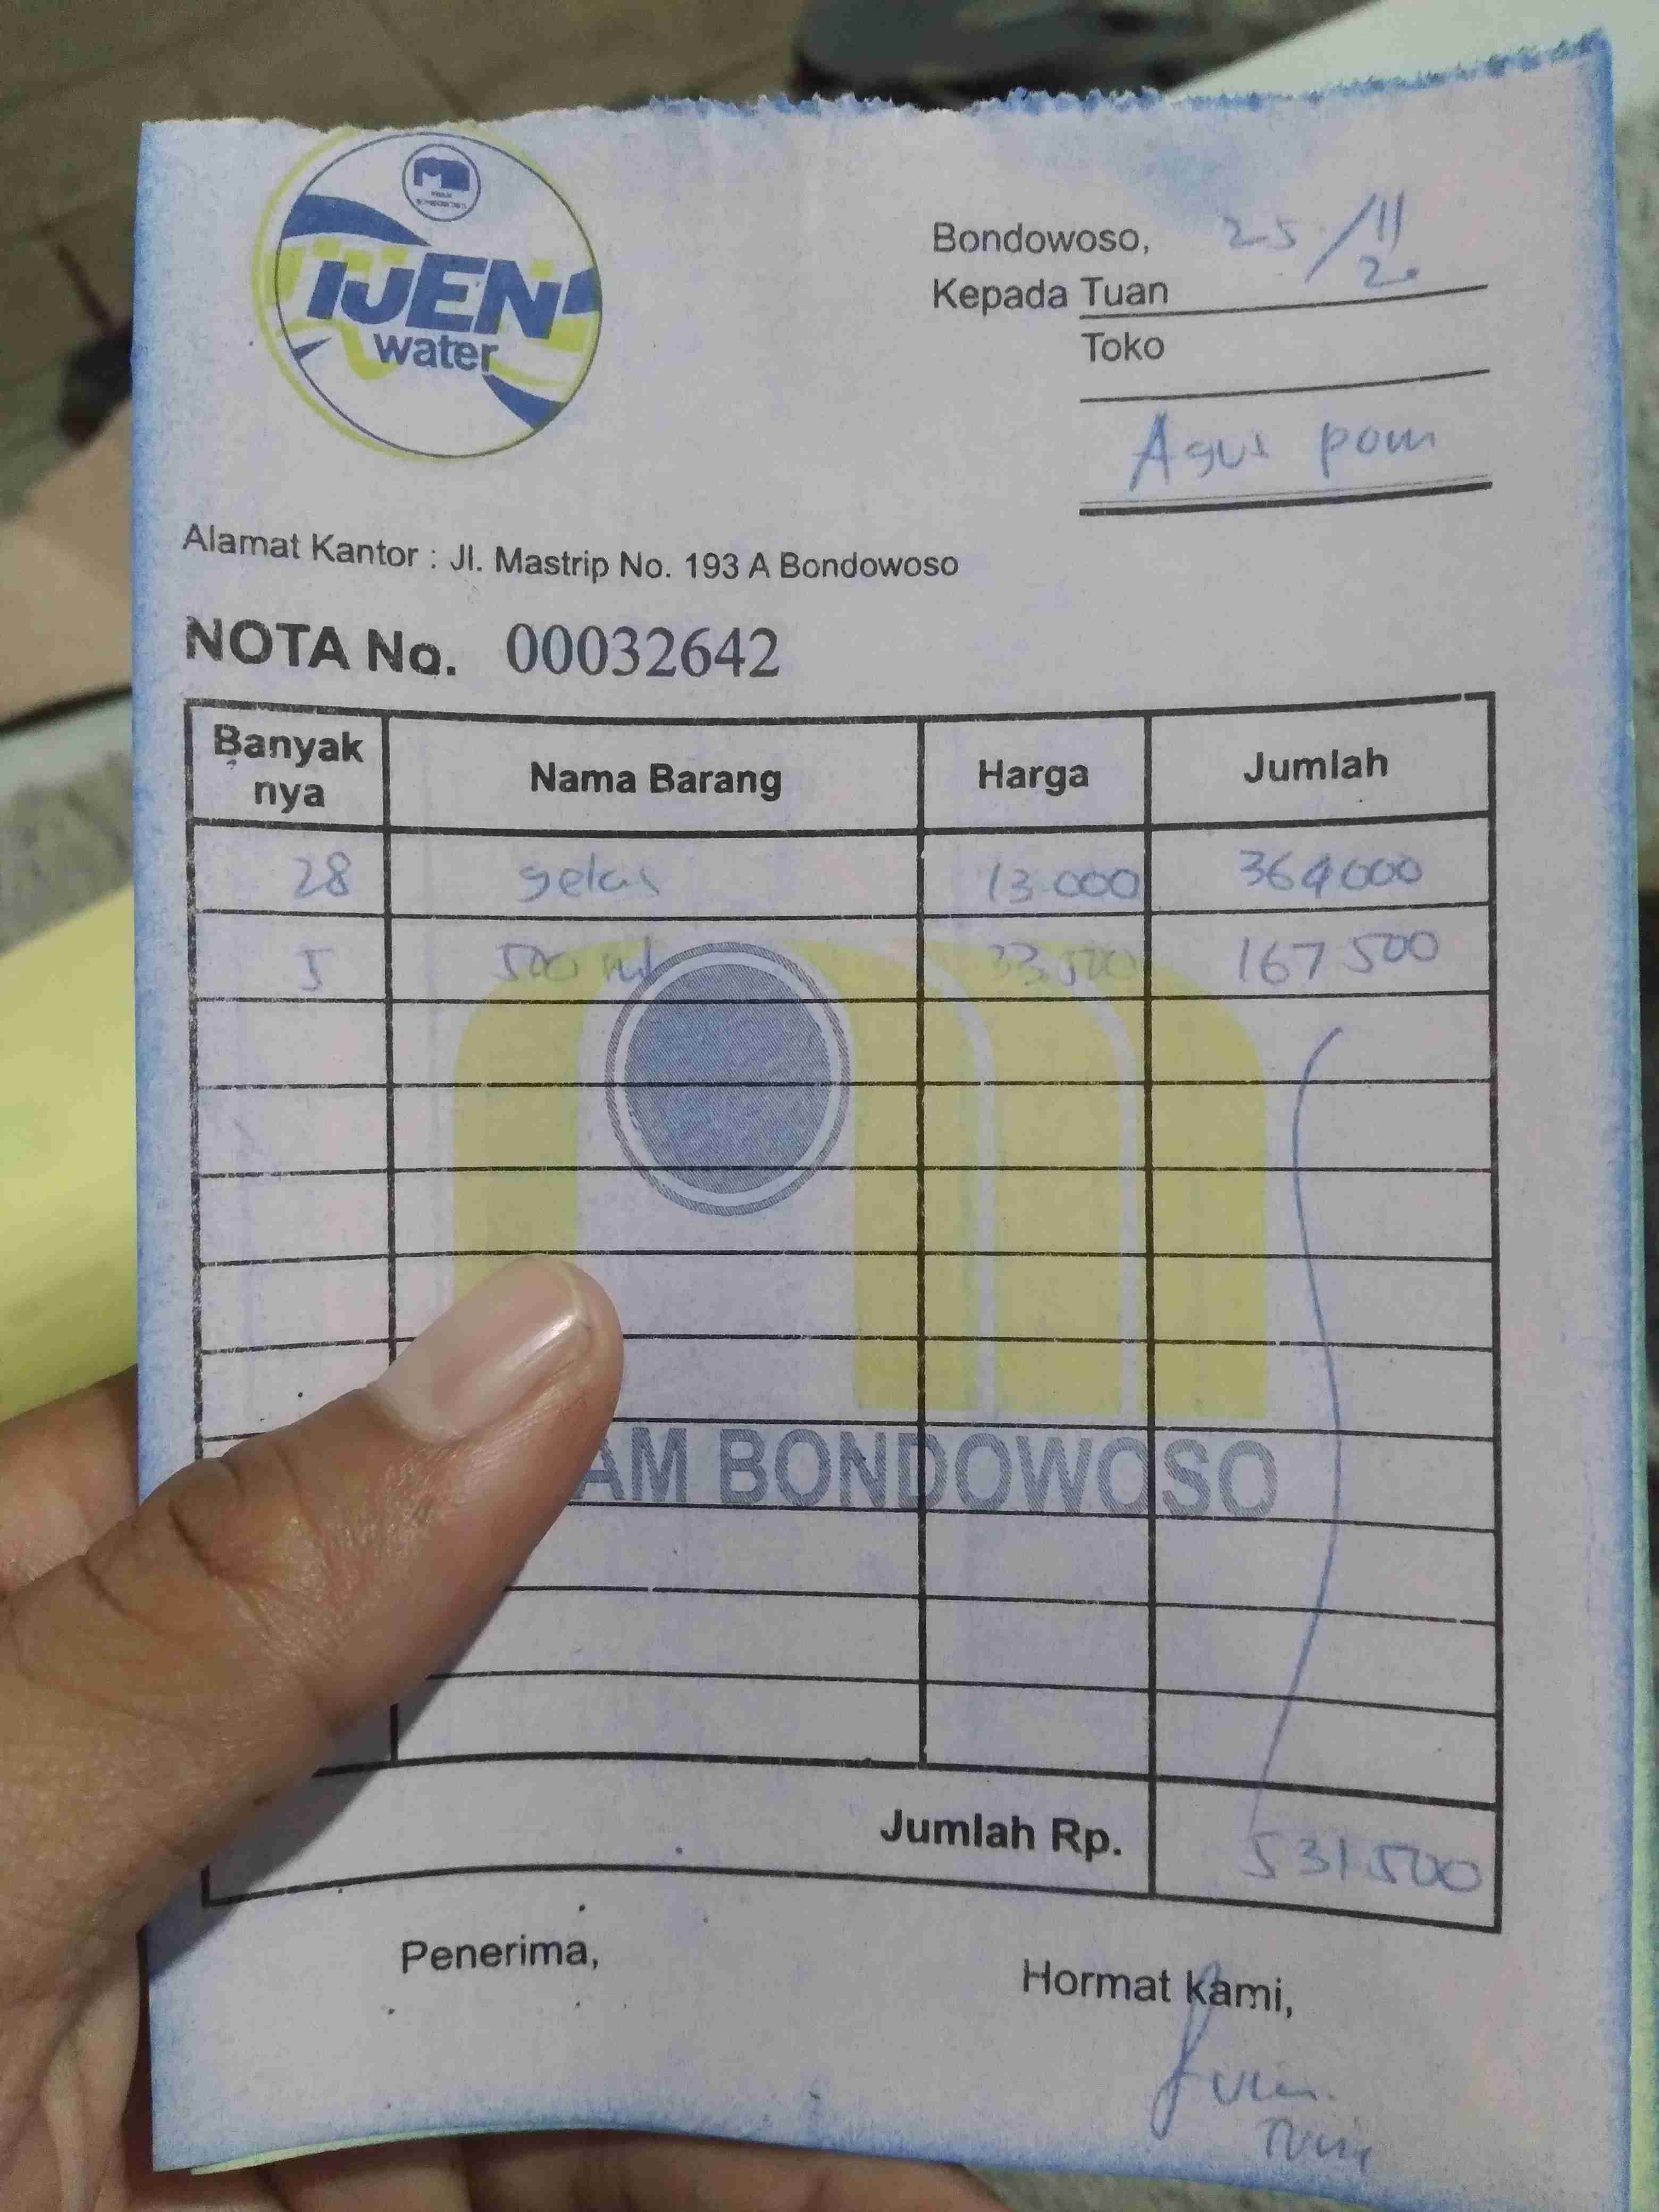 IJEN
water
Bondowoso, 25/11 20
Kepada Tuan
Toko
Agus pom
Alamat Kantor : Jl. Mastrip No. 193 A Bondowoso
NOTA No. 00032642
Banyak nya Nama Barang Harga Jumlah
28 gelas 13.000 364000
5 500 ml 33.500 167 500
AM BONDOWOSO
Jumlah Rp. 531500
Penerima, Hormat kami,